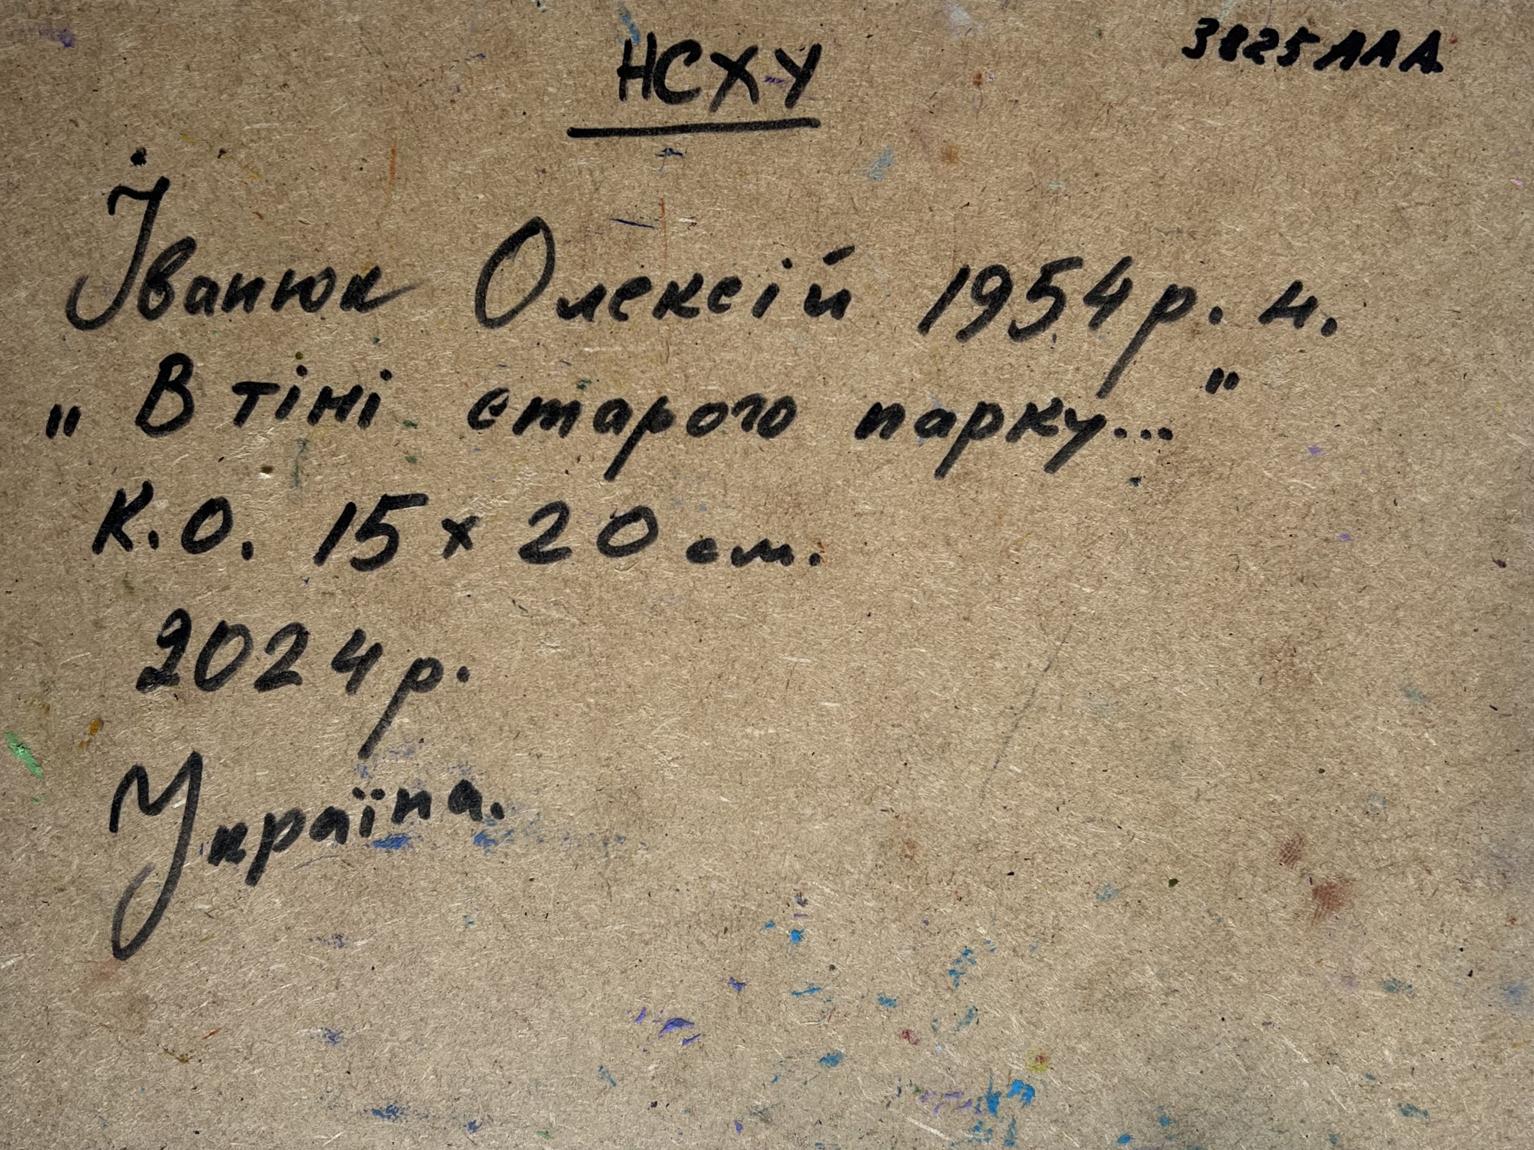 НСХУ
3825 ААА.
Іванюк Олексій 1954 р. н.
"В тіні старого парку..."
К.О. 15 x 20 см.
2024 р.
Україна.